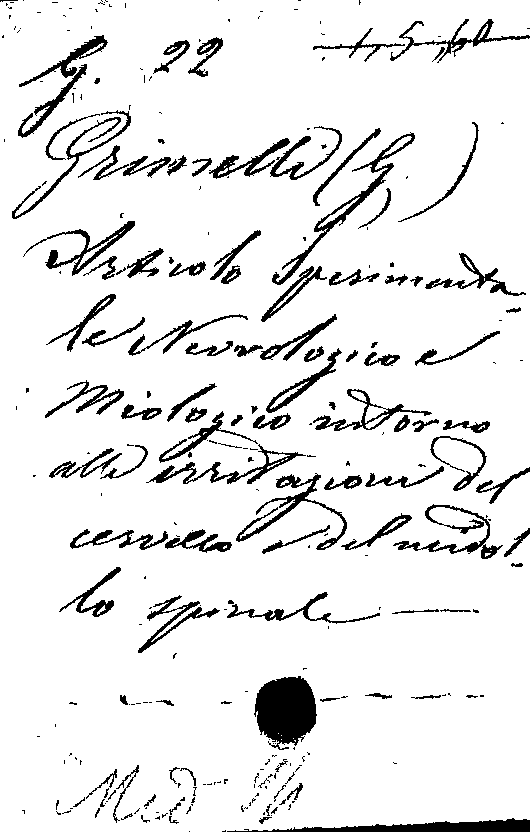 G. 22 1,5,60
Grimelli (G.)
Articolo Sperimenta-
le Nevrologico e
Miologico intorno
alle irritazioni del
cervello e del midol-
lo spinale —
Med